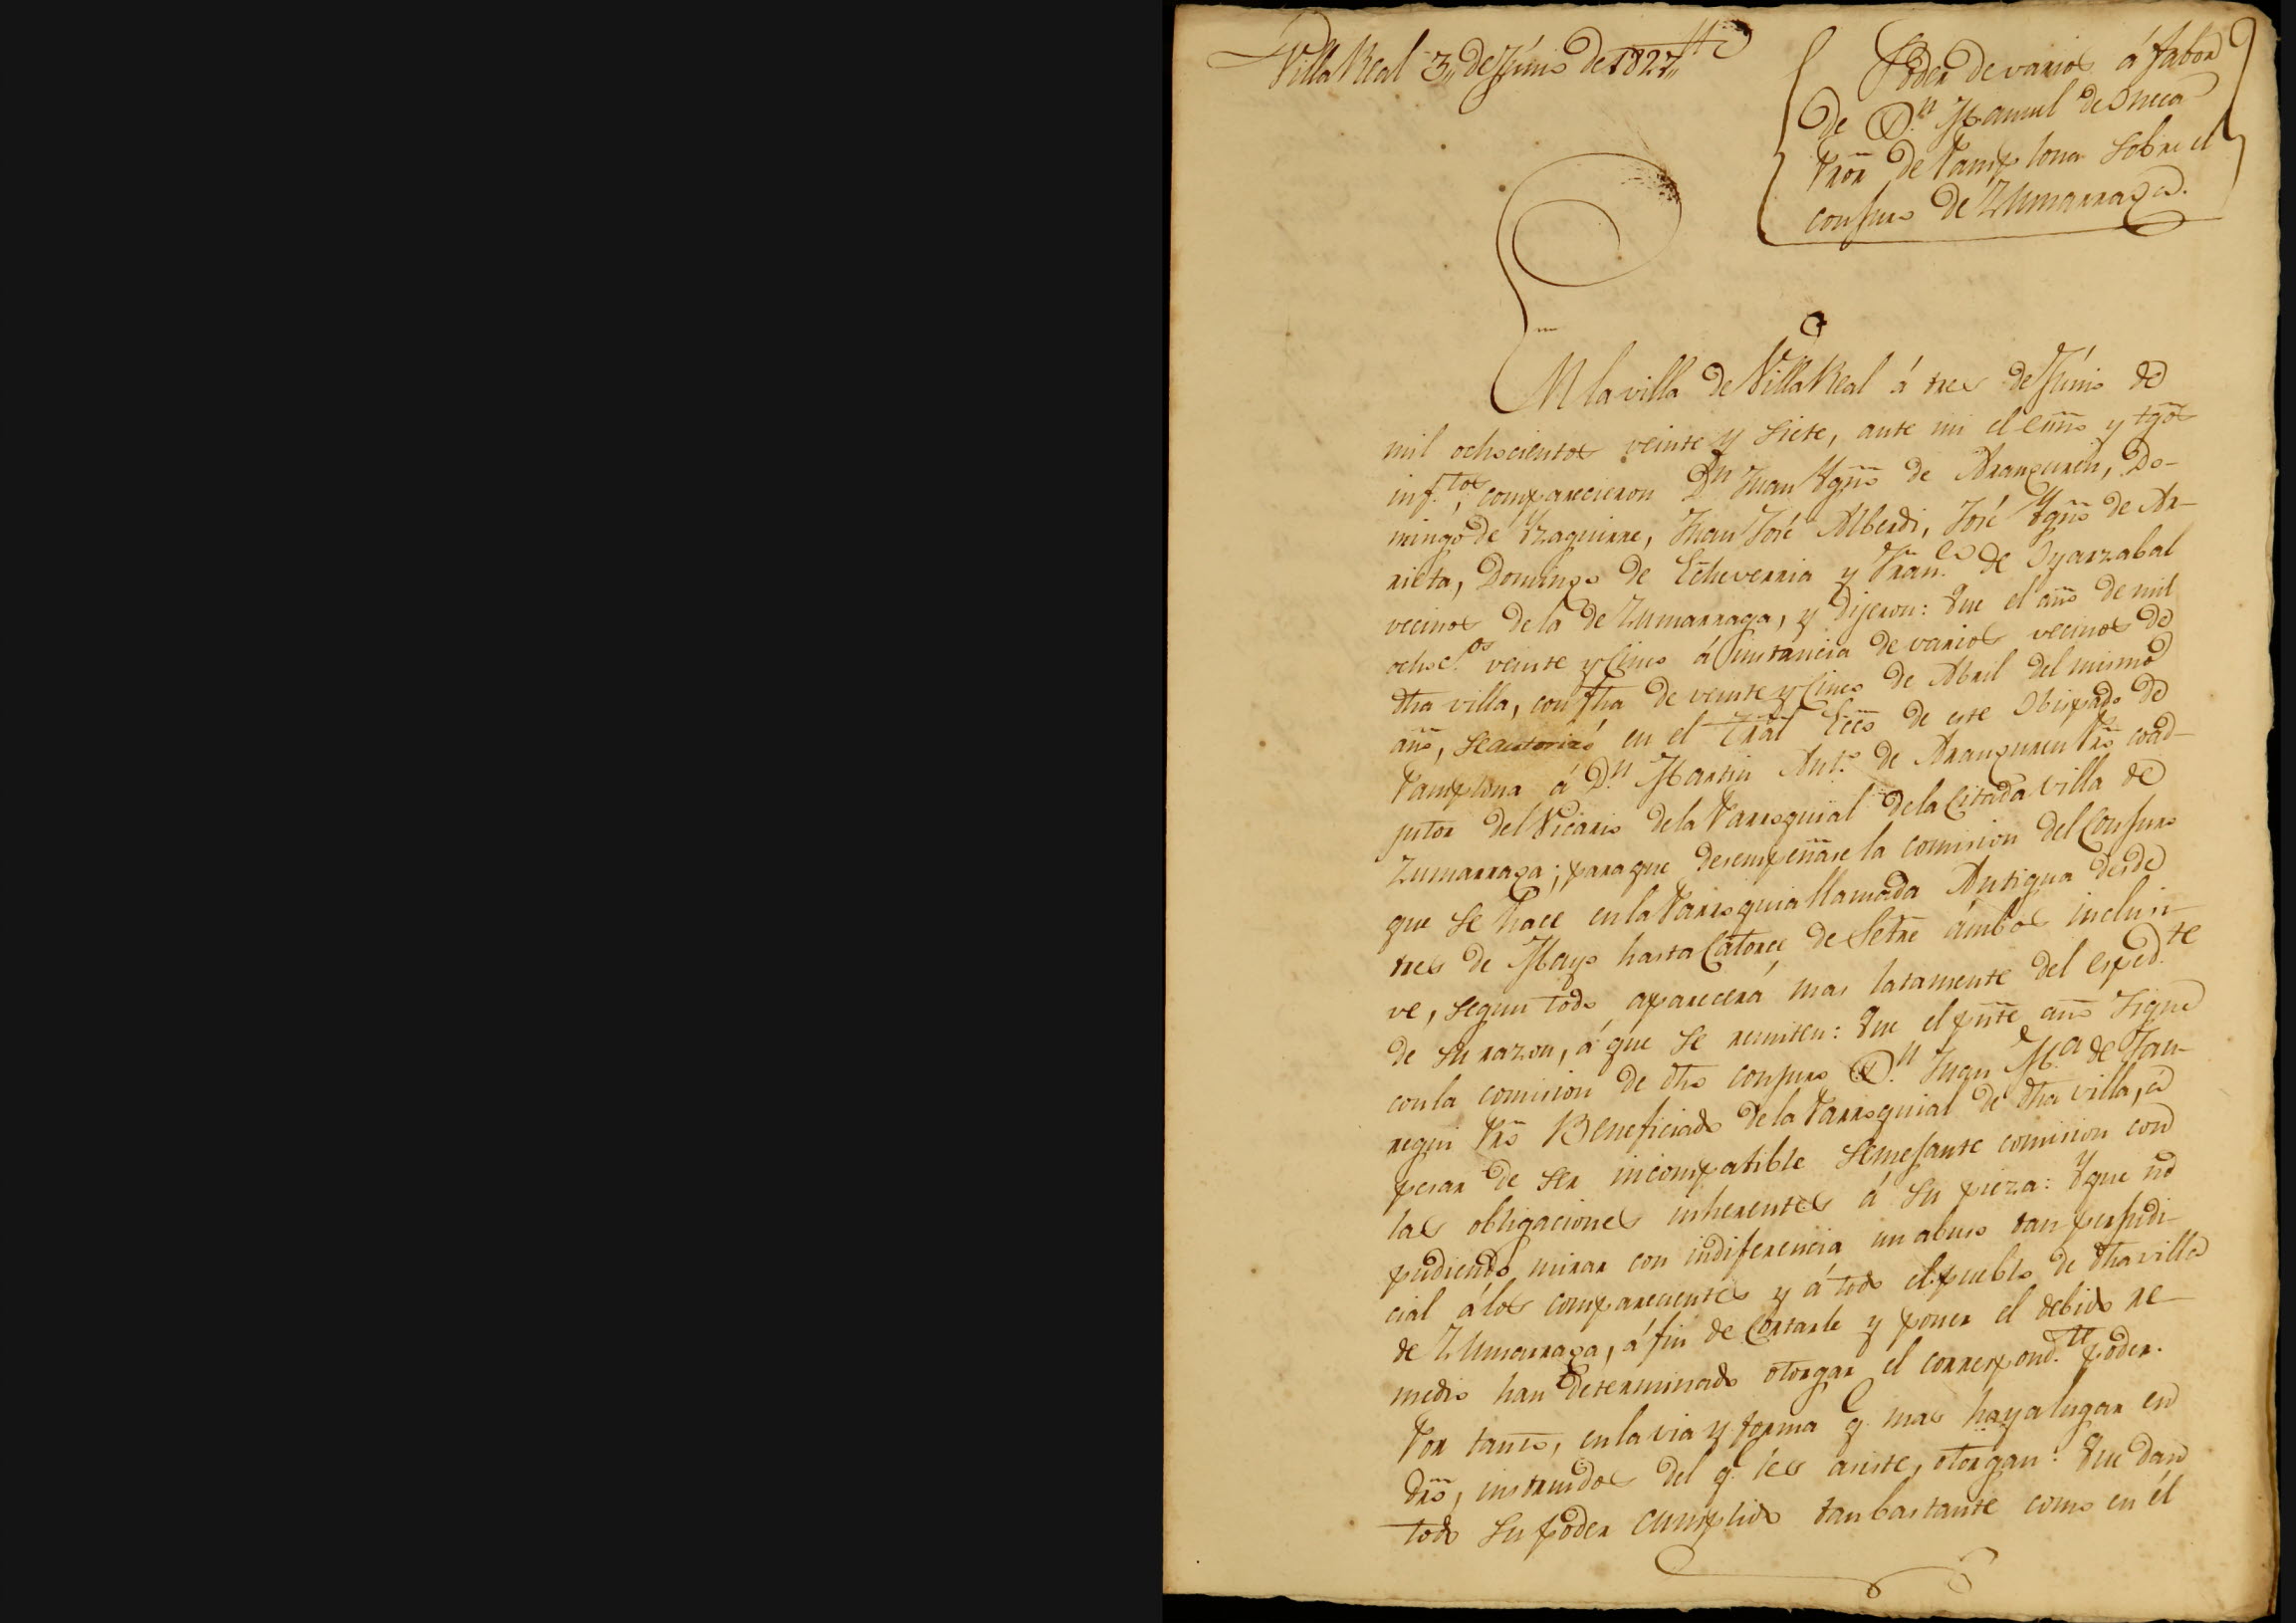 Villa Real 3,, de Junio de 1827,,
Poder de varios á fabor
de D.n Manuel de Oneca
Prõr de Pamplona sobre el
conjuro de Zumarraga.
En la villa de Villa Real á tres de Junio de
mil ochocientos veinte y siete, ante mi el esñno y tgõs
inf.tos, comparecieron D.n Juan Ygñо de Aranguren, Do-
mingo de Yzaguirre, Juan José Alberdi, José Ygño de Ar-
rieta, Domingo de Echeverria y Fran.co de Oyarzabal
vecinos de la de Zumarraga, y dijeron: Que el año de mil
ochoc.os veinte y cinco á instancia de varios vecinos de
dha villa, con fha de veinte y cinco de Abril del mismo
año, se autorizó en el Trãl Ecco de este Obispado de
Pamplona á D.n Martin Ant.o de Aranguren Prõ coad-
jutor del Vicario de la Parroquial de la citada villa de
Zumarraga; para que desempeñase la comision del conjuro
que se hace en la Parroquia llamada Antigua desde
tres de Mayo hasta catorce de Setre ámbos inclusi-
ve, segun todo aparecerá mas latamente del esped.te
de su razon, á que se remiten: Que el pñte año sigue
con la comision de dho conjuro D.n Juan M.a de Jau-
regui Prõ Beneficiado de la Parroquial de dha villa, á
pesar de ser incompatible semejante comision con
las obligaciones inherentes á su pieza: Y que no
pudiendo mirar con indiferencia un abuso tan perjudi-
cial á los comparecientes y á todo el pueblo de dha villa
de Zumarraga, á fin de cortarle y poner el debido re-
medio han determinado otorgar el correspond.te poder.
Por tanto, en la via y forma q. mas haya lugar en
drõ, instruidos del q. les asiste, otorgan: Que dan
todo su poder cumplido tan bastante como en él